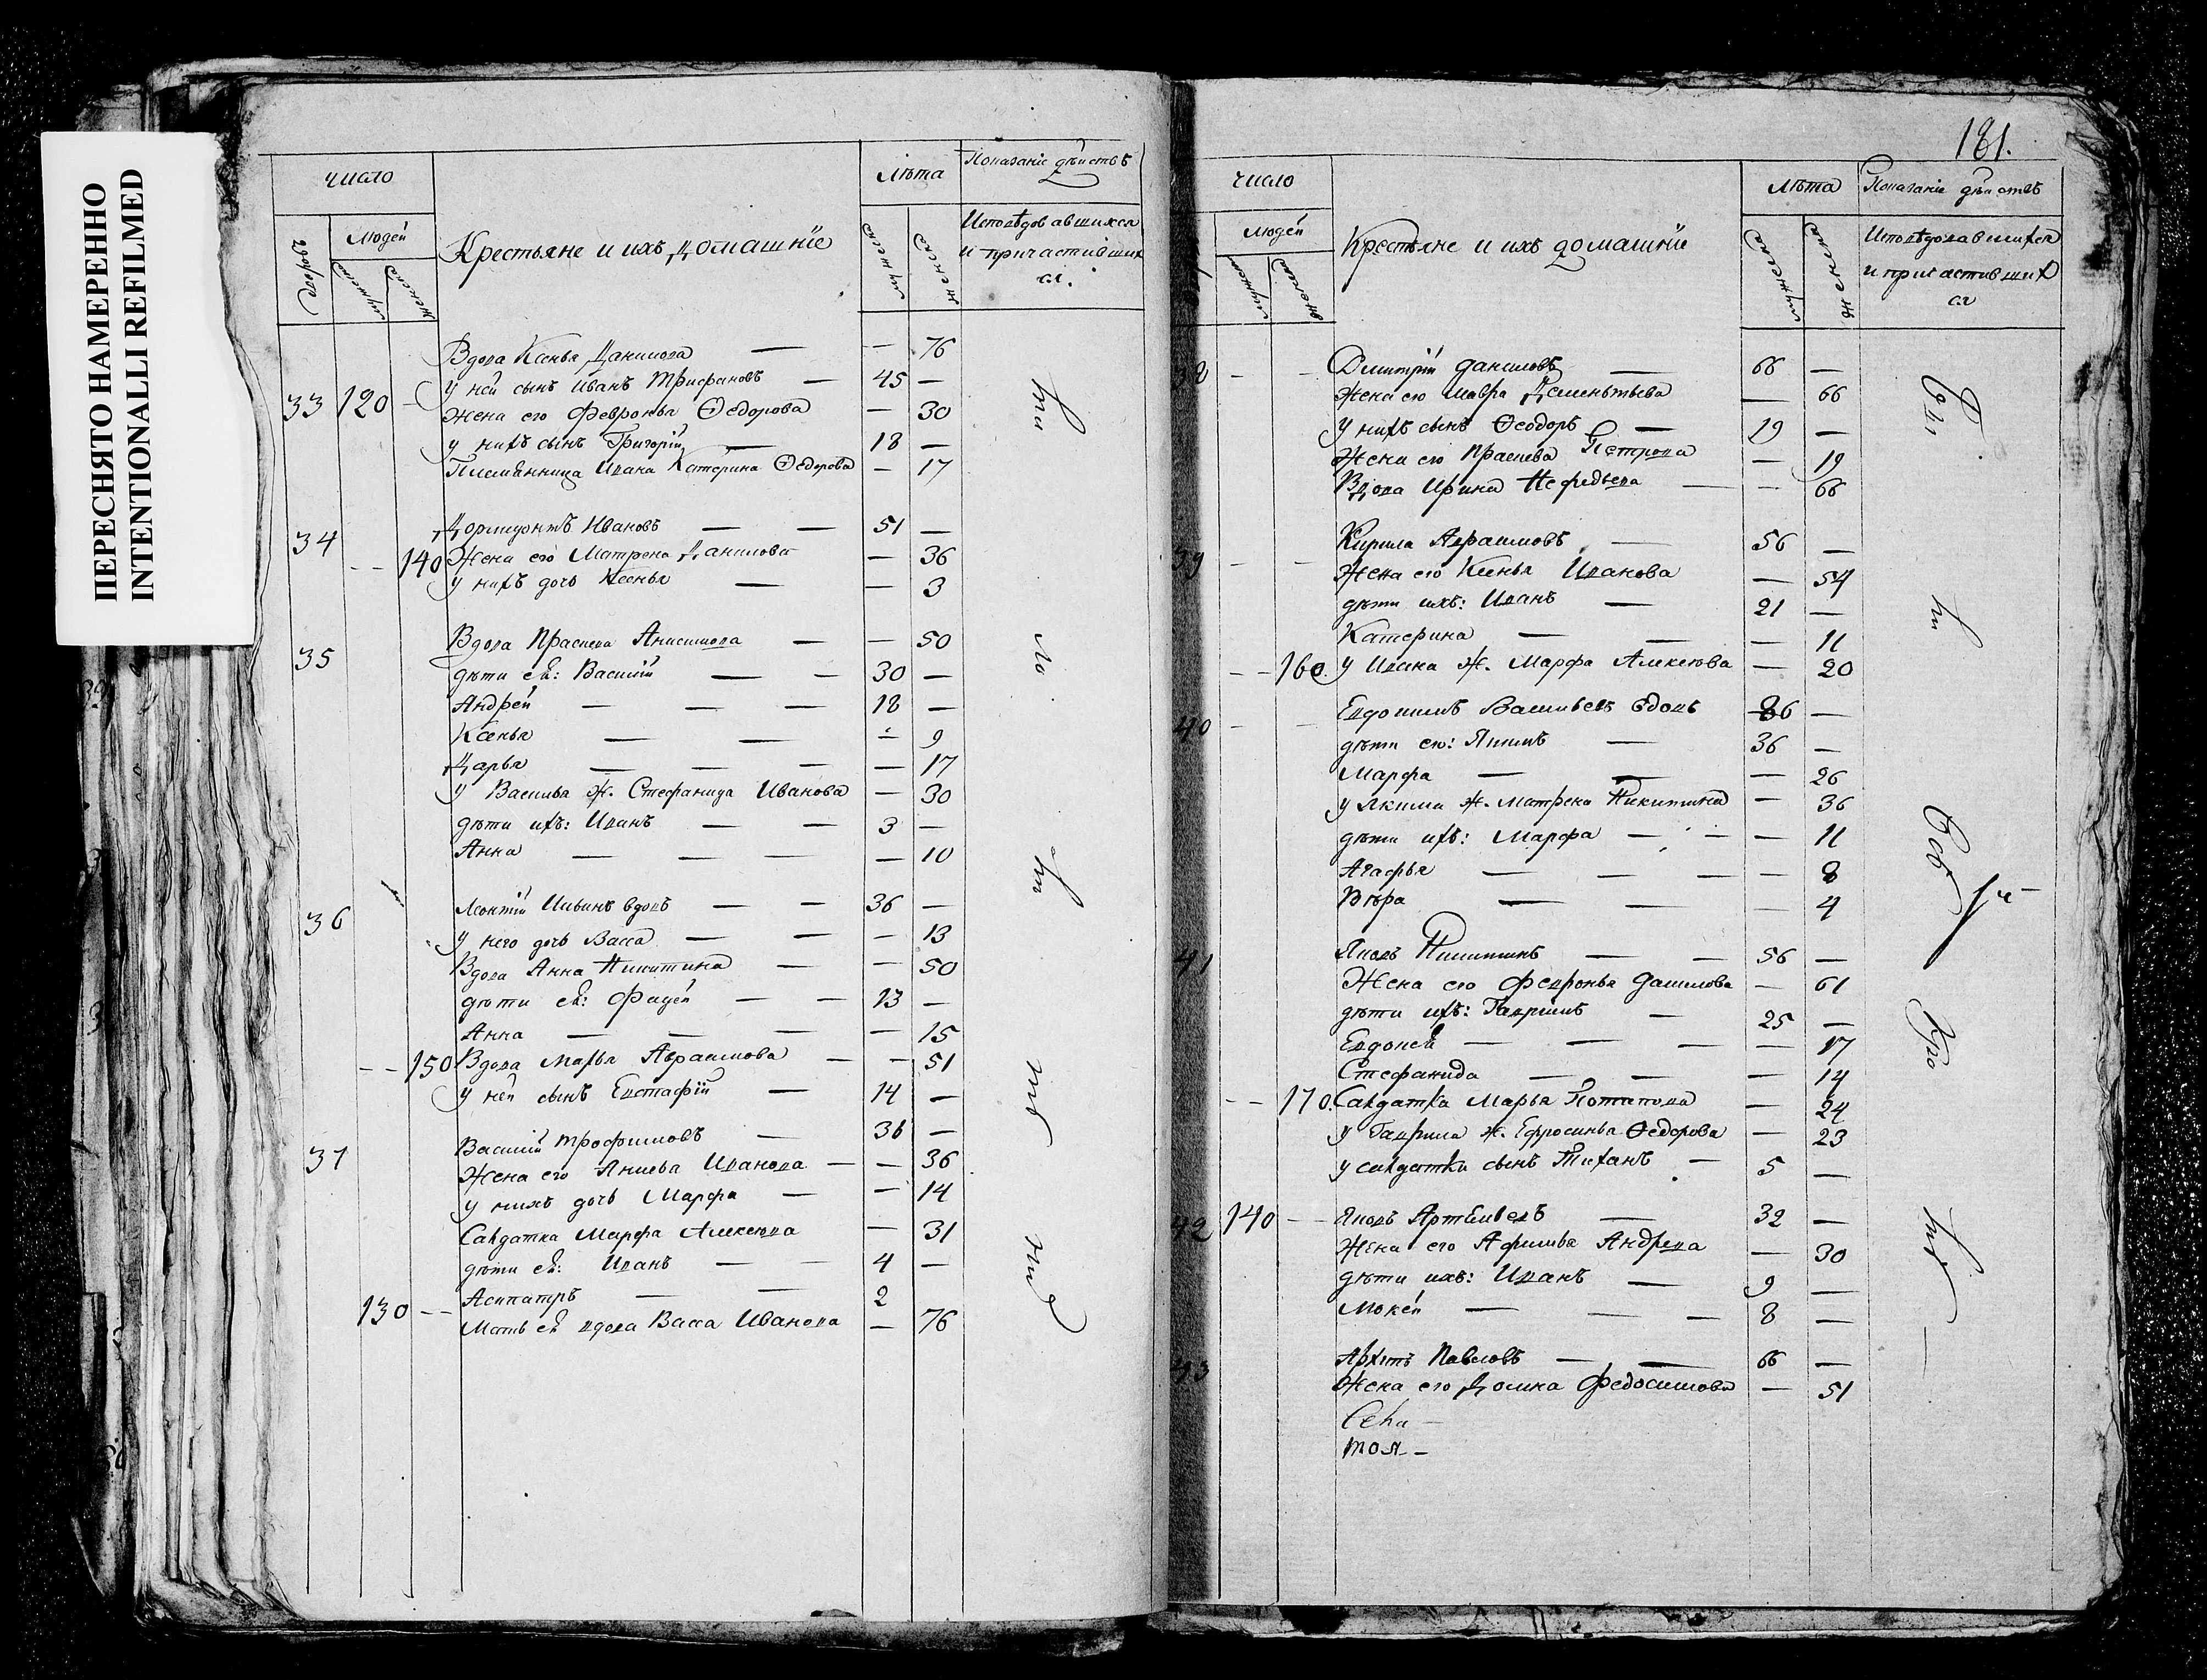 ПЕРЕСНЯТО НАМЕРЕННО
INTENTIONALLI REFILMED
число
Лѣта
Показаніе дѣйствъ
дворовъ
людей
мужеска
женска
Крестьяне и ихъ домашніе
мужеска
женска
Исповѣдовавшихся
и причастивших
ся.
Вдова Ксенья Данилова — — 76
у ней сынъ Иванъ Трифановъ — 45 —
33 120 — жена его Февронья Ѳедорова — 30
у нихъ сынъ Григорій — 18 —
Племянница Ивана Катерина Ѳедорова — 17
34 Дормидонтъ Ивановъ — — 51 —
- - 140 Жена его Матрена Данилова — 36
у нихъ дочь Ксенья — — 3
35 Вдова Прасковья Анисимова — — 50
дѣти ея: Василій — — 30 —
Андрей — — — 18 —
Ксенья — — — 9
Дарья — — — — 17
у Василья ж. Стефанида Иванова — 30
дѣти ихъ: Иванъ — — 3 —
Анна — — — — 10
36 Леонтій Ильинъ вдовъ — — 36 —
у него дочь Васса — — — 13
Вдова Анна Никитина — — 50
дѣти ея: Фадей — — 13 —
Анна — — — — 15
- - 150 Вдова Марья Авраамова — — 51
у ней сынъ Евстафій — 14 —
37 Василій Трофимовъ — 36 —
Жена его Анисья Иванова — — 36
у нихъ дочь Марфа — — 14
Салдатка Марфа Алексеева — 31
дѣти ея: Иванъ — — 4 —
Асипатръ — — 2
130 - - Мать ея вдова Васса Иванова — 76
181.
число
Лѣта
Показаніе дѣйствъ
людей
мужеска
женска
Крестьяне и ихъ домашніе
мужеска
женска
Исповѣдовавшихся
и причастивших
ся
38 - - Дмитрій Даниловъ — 66 —
жена его Мавра Дементьева — 66
у нихъ сынъ Ѳеодоръ — 19 —
Жена его Прасковья Петрова — 19
Вдова Ирина Нефедьева — — 66
39 - - Кирила Авраамовъ — 56 —
Жена его Ксенья Иванова — 54
дѣти ихъ: Иванъ — 21 —
Катерина — — — 11
- - 160. у Ивана ж. Марфа Алексеева — 20
40 - - Евдокимъ Васильевъ вдовъ 86 —
дѣти его: Якимъ — 36 —
Марфа — — — 26
у Якима ж. Матрена Никитина — 36
дѣти ихъ: Марфа — — — 11
Агафья — — — — 8
Вѣра — — — 4
41 Яковъ Никитинъ — — 56 —
Жена его Февронья Данилова — 61
дѣти ихъ: Гаврилъ — 25 —
Евдокея — — — — 17
Стефанида — — — 14
- - 170. Салдатка Марья Потапова — 24
у Гаврила ж. Ефросинья Ѳедорова — 23
у салдатки сынъ Тиханъ — 5 —
42 140 - - Яковъ Артемьевъ — 32 —
Жена его Афимья Андреева — 30
дѣти ихъ: Иванъ — 9 —
Мокей — — — 8 —
43 Архипъ Павловъ — — 66 —
Жена его Домна Федосимова — 51